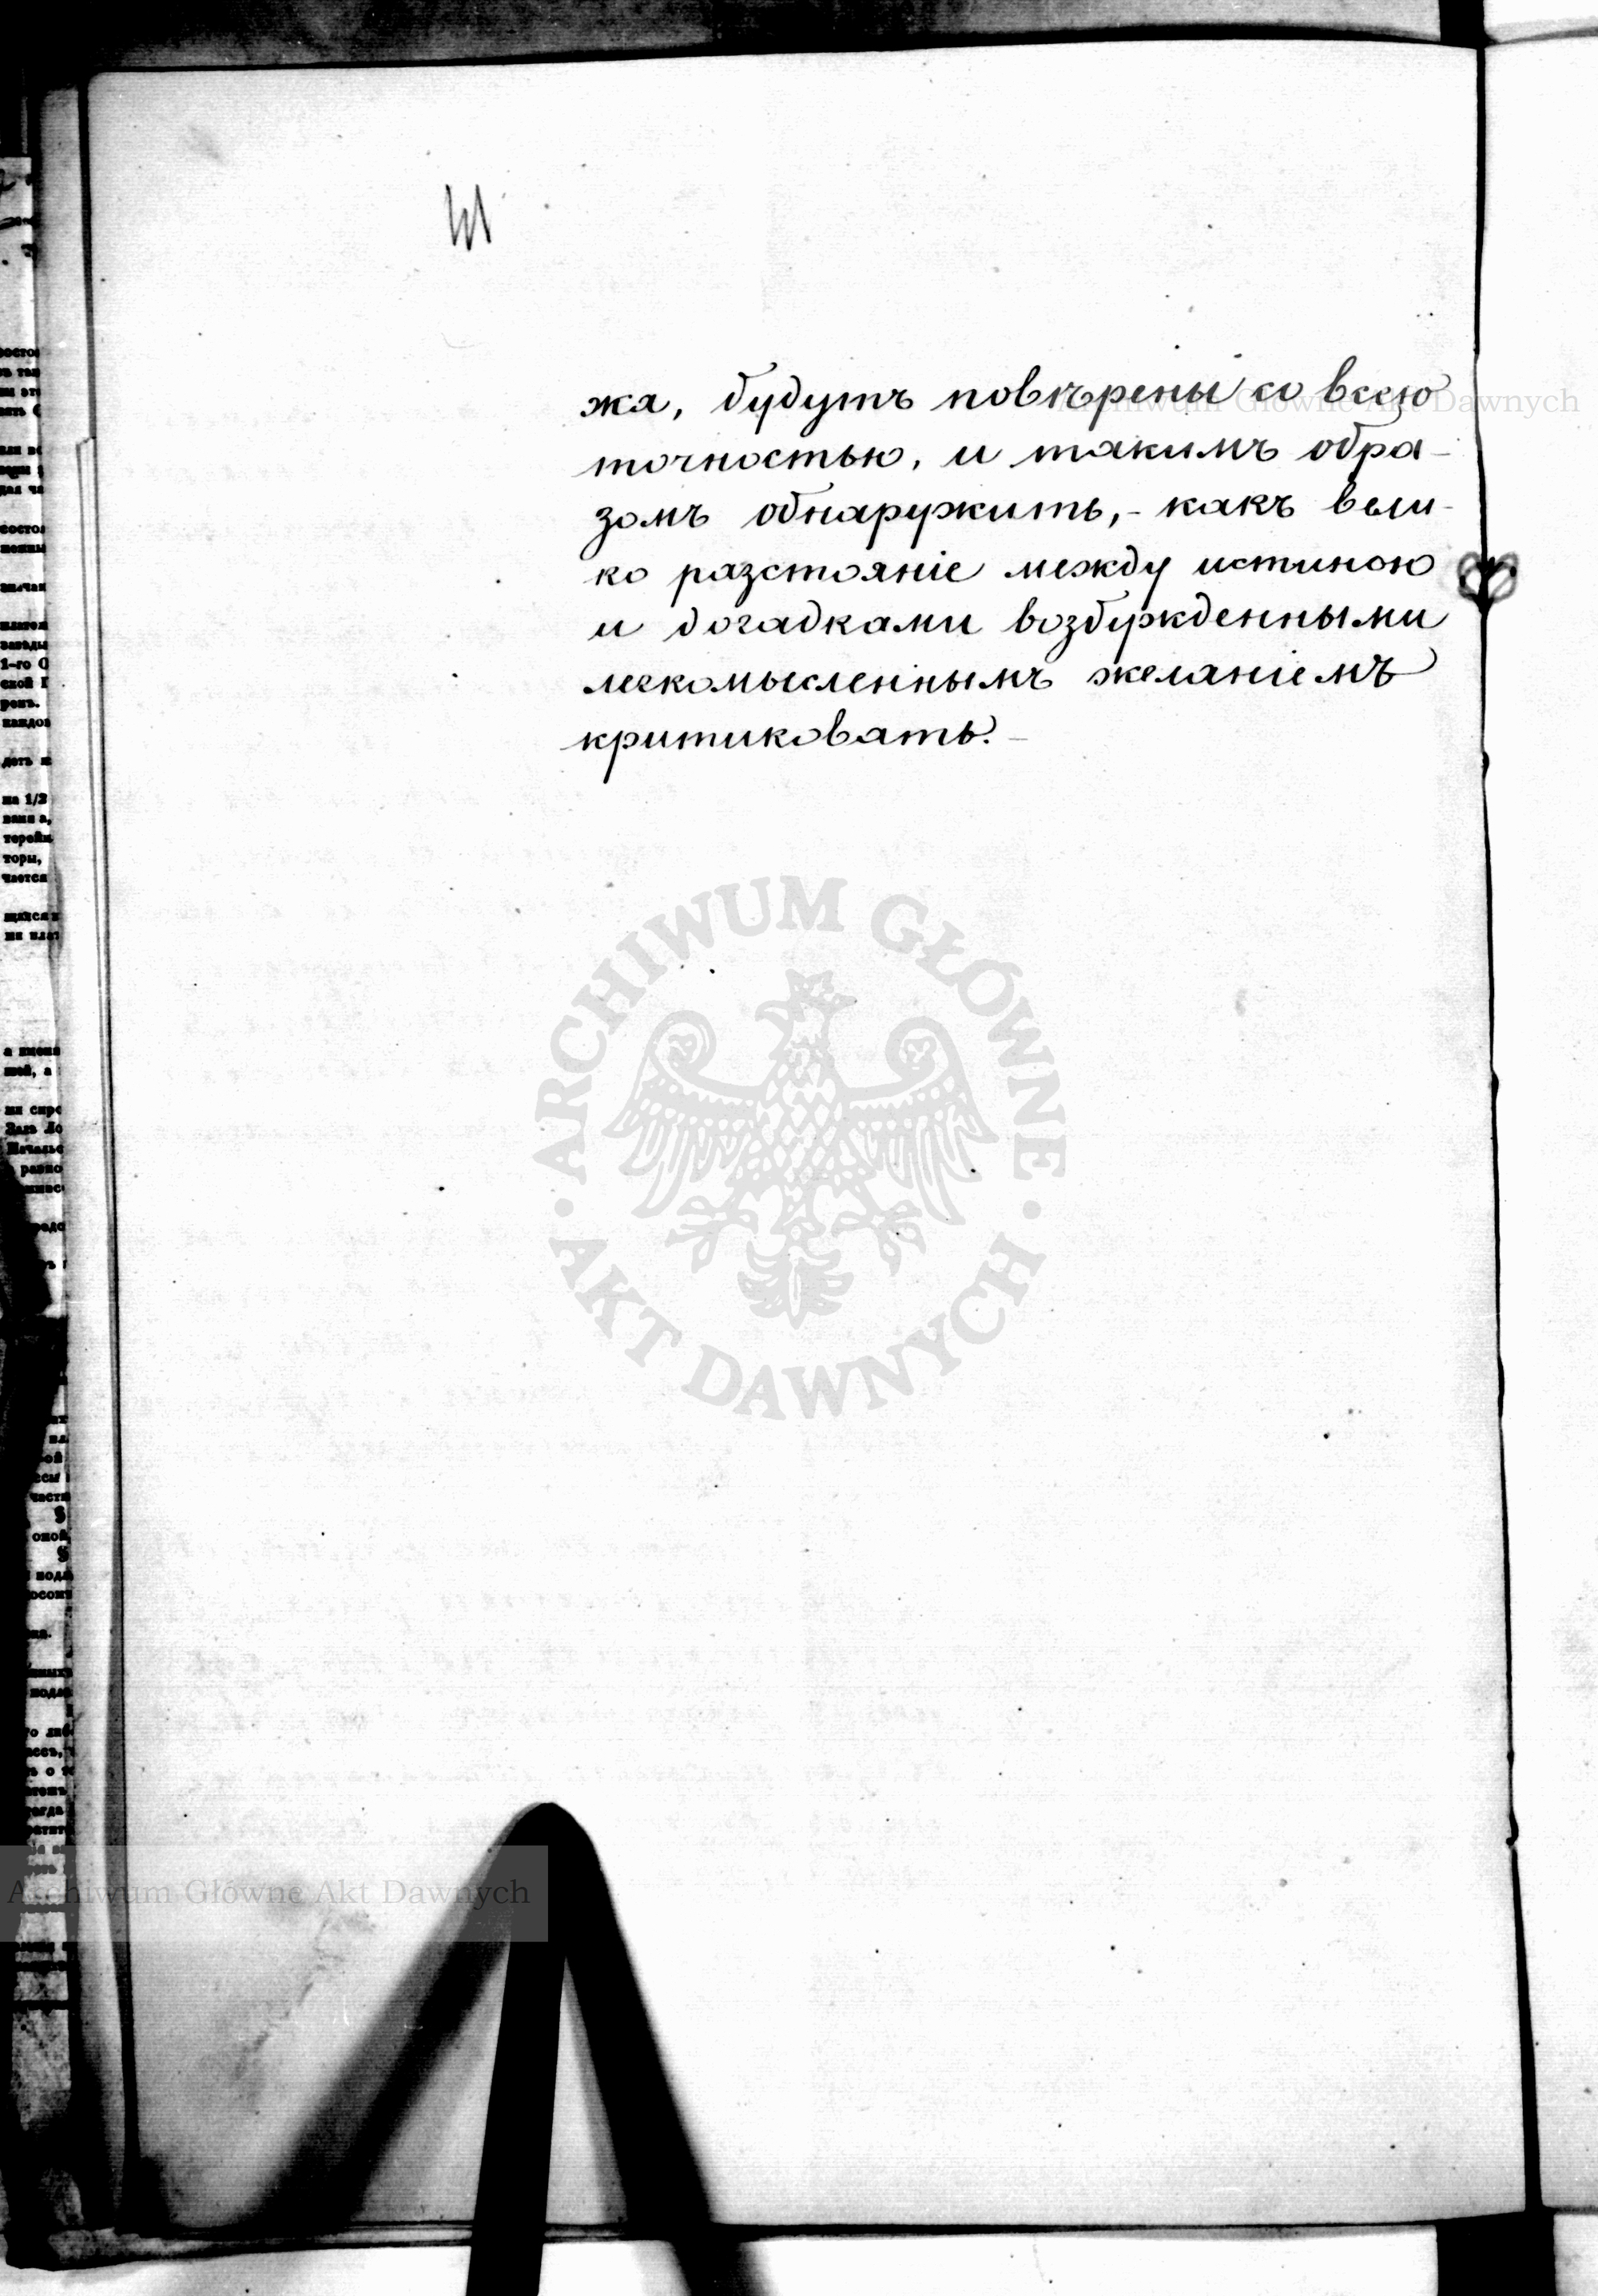 жа, будутъ повѣрены со всею
точностью, и такимъ обра-
зомъ обнаружить,- какъ вели-
ко разстояніе между истиною
и догадками возбужденными
легкомысленнымъ желаніемъ
критиковать.-
Archiwum Główne Akt Dawnych
ARCHIWUM GŁÓWNE
AKT DAWNYCH
Archiwum Główne Akt Dawnych